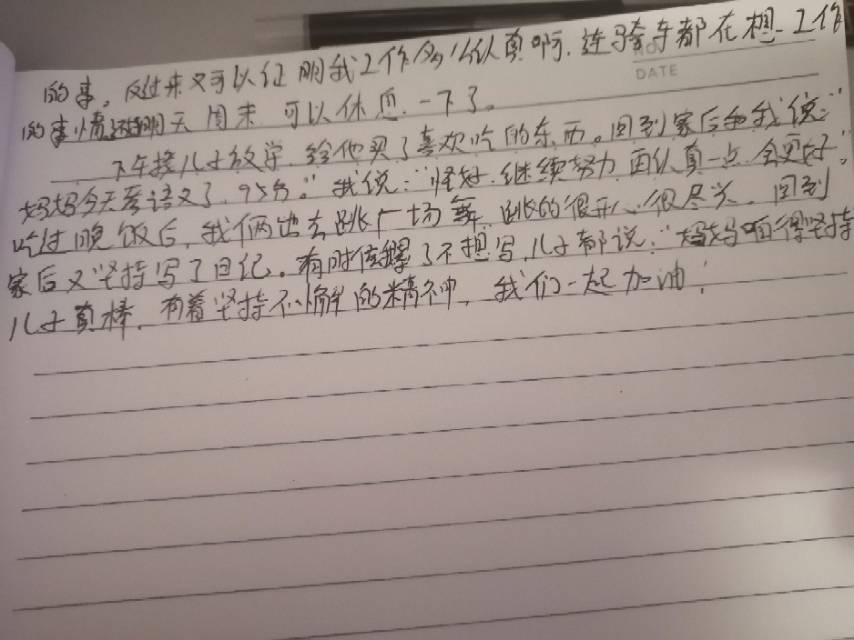 DATE
的事。反过来又可以证明我工作多么认真啊.连骑车都在想工作
的事情还好明天周末.可以休息一下了。
下午接儿子放学.给他买了喜欢吃的东西。回到家后和我说:"
妈妈今天考语文了.95分。"我说:"怪好.继续努力再认真一点会更好。
吃过晚饭后,我俩出去跳广场舞.跳的很开心很尽兴.回到
家后又坚持写了日记。有时候累了不想写.儿子都说:"妈妈咱得坚持
儿子真棒.有着坚持不懈的精神,我们一起加油!